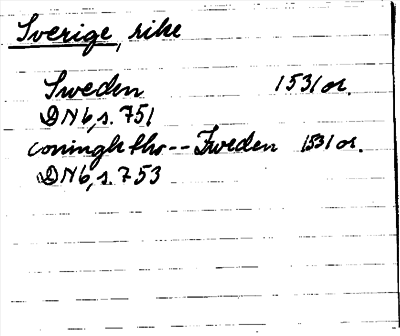 Sverige, rike
Sweden 1531 or.
DN 6, s. 751
coningh tho -- Sweden 1531 or.
DN 6, s. 753